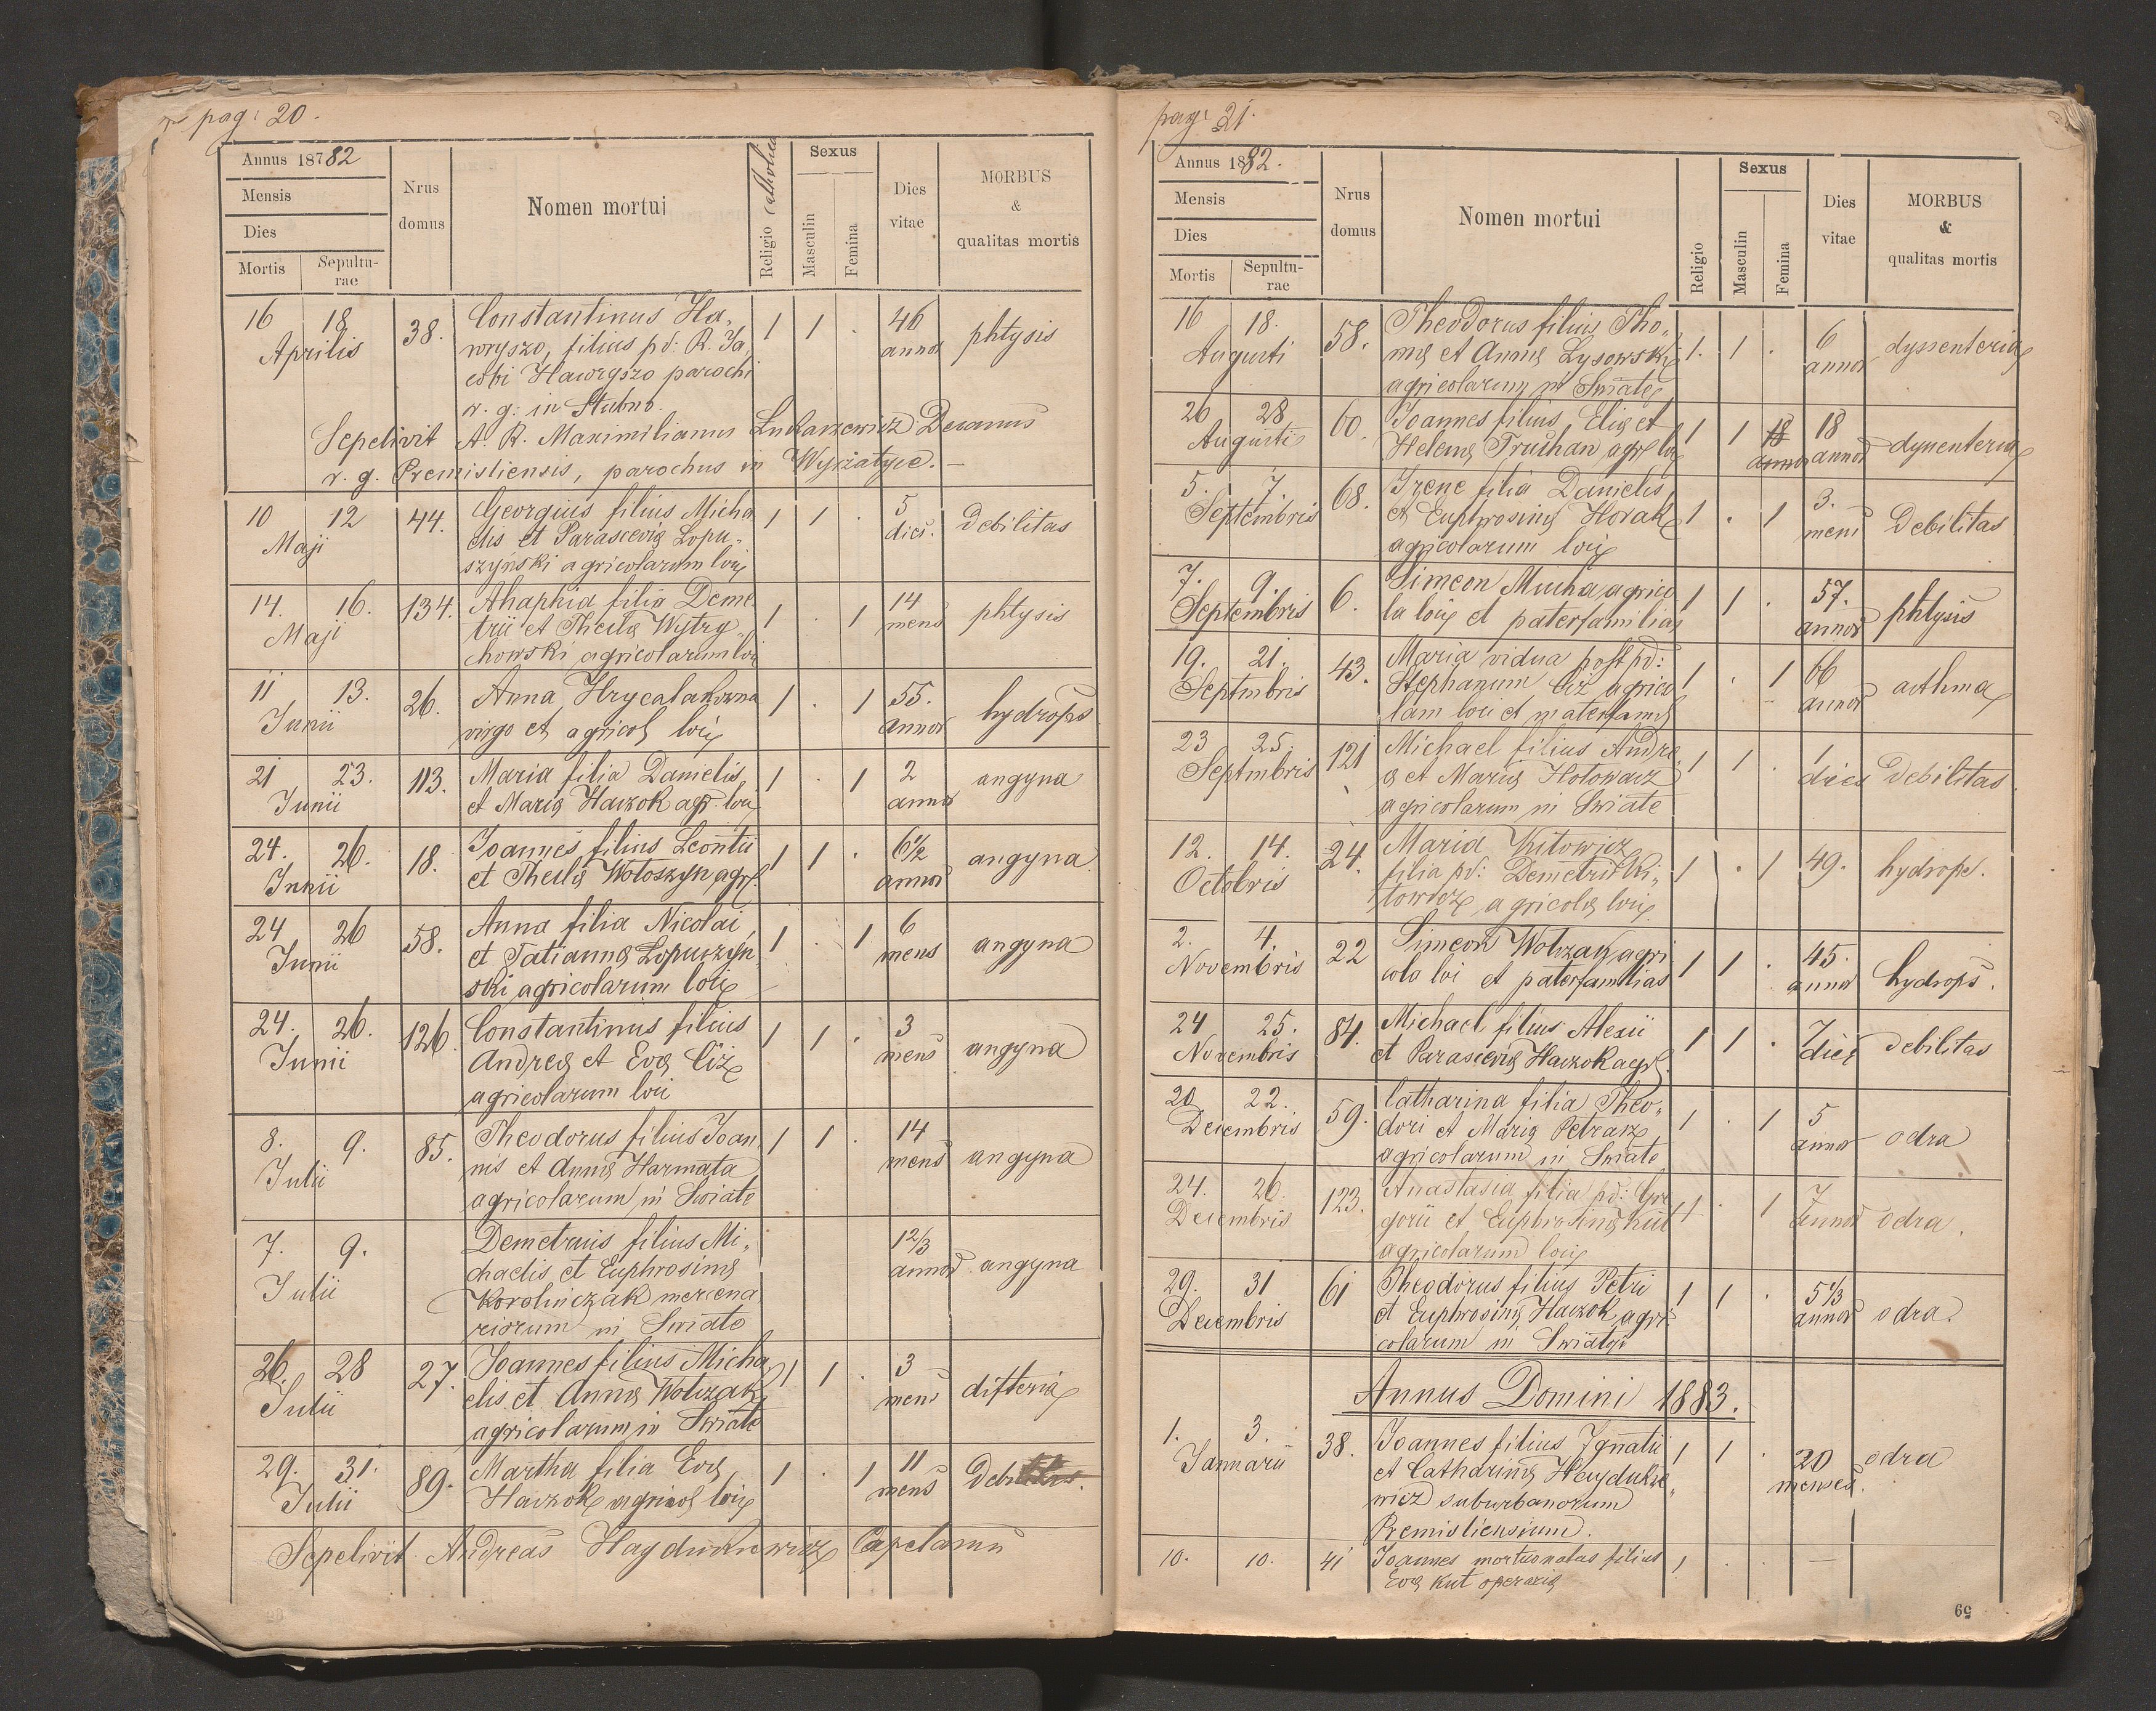 pag: 20.
Annus 18782
Mensis
Dies
Mortis Sepultu-
rae
Nrus
domus
Nomen mortui
Religio Catholica
Sexus
Masculin
Femina
Dies
vitae
MORBUS
&
qualitas mortis
16 18 38. Constantinus Ha- 1 1 . 46 phtysis
Aprilis wryszo, filius pd: R. Ja annor
cobi Hawryszo parochi
r. g. in Stubno.
Sepelivit A. R. Maximilianus Lukaszewicz Decanus
r. g. Premisliensis, parochus in Wyszatyce. —
10 12 44. Georgius filius Micha 1 1 . 5 Debilitas
Maji elis et Parascevię Lopu- dies.
szyński agricolarum loci
14. 16. 134. Ahaphia filia Deme- 1 . 1 14 phtysis
Maji trii et Theclę Wytry- mens
chowski agricolarum loci
11 13. 26. Anna Hrycalakowna 1 . 1 55. hydrops
Junii virgo et agricol loci annor
21 23. 113. Maria filia Danielis 1 . 1 2 angyna
Junii et Marię Haczok agr. loci annor
24. 26. 18. Joannes filius Leontii 1 1 . 6½ angyna
Junii et Theclę Wołoszyn agr. annor
24 26 58. Anna filia Nicolai 1 . 1 6 angyna
Junii et Tatiannę Lopuszyn- mens
ski agricolarum loci
24. 26. 126. Constantinus filius 1 1 . 3 angyna
Junii Andreę et Evę Ciż mens
agricolarum loci
8. 9. 85. Theodorus filius Joan- 1 1 . 14 angyna
Julii nis et Annę Harmata mens
agricolarum in Swiate
7. 9. Demetrius filius Mi- 1 2/3 angyna
Julii chaelis et Euphrosinę annor
Korolinczak mercena
riorum in Swiate
26. 28 27. Joannes filius Micha 1 1 . 3 difteria
Julii elis et Annę Wołczak mens
agricolarum in Swiate
29. 31. 89. Martha filia Evę 1 . 1 11 Debilitas.
Julii Haczok agricol loci mens
Sepelivit Andreas Haydukiewicz Capelanus
pag: 21.
Annus 1882.
Mensis
Dies
Mortis Sepultu-
rae
Nrus
domus
Nomen mortui
Religio
Sexus
Masculin
Femina
Dies
vitae
MORBUS
&
qualitas mortis
16 18. 58. Theodorus filius Tho- 1. 1 . 6 dyssenteria
Augusti mę et Annę Lysowski annor
agricolarum in Swiate
26 28 60. Joannes filius Elię et 1 1 18 18 dysenteria
Augusti Helenę Truchan agr loci annor annor
5. 7. 68. Irene filia Danielis 1 . 1 3. Debilitas
Septembris et Euphrosinę Horak mens
agricolarum loci
7. 9. 6. Simeon Mucha agrico 1 1 . 57. phtysis
Septembris la loci et paterfamilias annor
19. 21. 43. Maria vidua post pd: 1 . 1 66 asthma
Septmbris Stephanum Ciż agrico annor
lam loci et materfamę
23 25. 121 Michael filius Andre 1 1 . 1 Debilitas.
Septmbris ę et Marię Hołowacz dies
agricolarum in Swiate
12. 14. 24. Maria Kitowicz 1 . 1 49. hydrops.
Octobris filia pd: Demetrii Ki-
towicz agricolę loci
2. 4. 22 Simeon Wołczak agri 1 1 . 45. hydrops.
Novembris cola loci et paterfamilias annor
24 25. 84. Michael filius Alexii 1 1 . 7 debilitas
Novembris et Parascevię Haczok agr. dies
20 22. 59. Catharina filia Theo- 1 . 1 5 odra
Decembris dori et Marię Petrasz annor
agricolarum in Swiate
24. 26. 123. Anastasia filia pd: Gre 1 . 1 7 odra.
Decembris gorii et Euphrosinę Kut annor
agricolarum loci
29. 31 61 Theodorus filius Petri 1 1 . 5 1/3 odra.
Decembris et Euphrosinę Haczok agri- annor
colarum in Swiate
Annus Domini 1883.
1. 3. 38. Joannes filius Ignatii 1 1 . 20 odra
Januarii et Catharinę Haydukie- menses.
wicz suburbanorum
Premisliensium.
10. 10. 41 Joannes mortuonatus filius 1 . . —
Evę Kut operarię